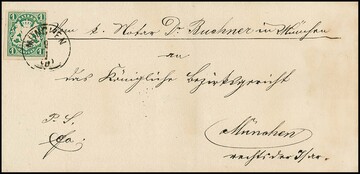 1 1
MÜNCHEN
Von k. Notar Dr. Buchner in München
an
das Königliche Bezirksgericht
P. S.
München
rechts der Isar.